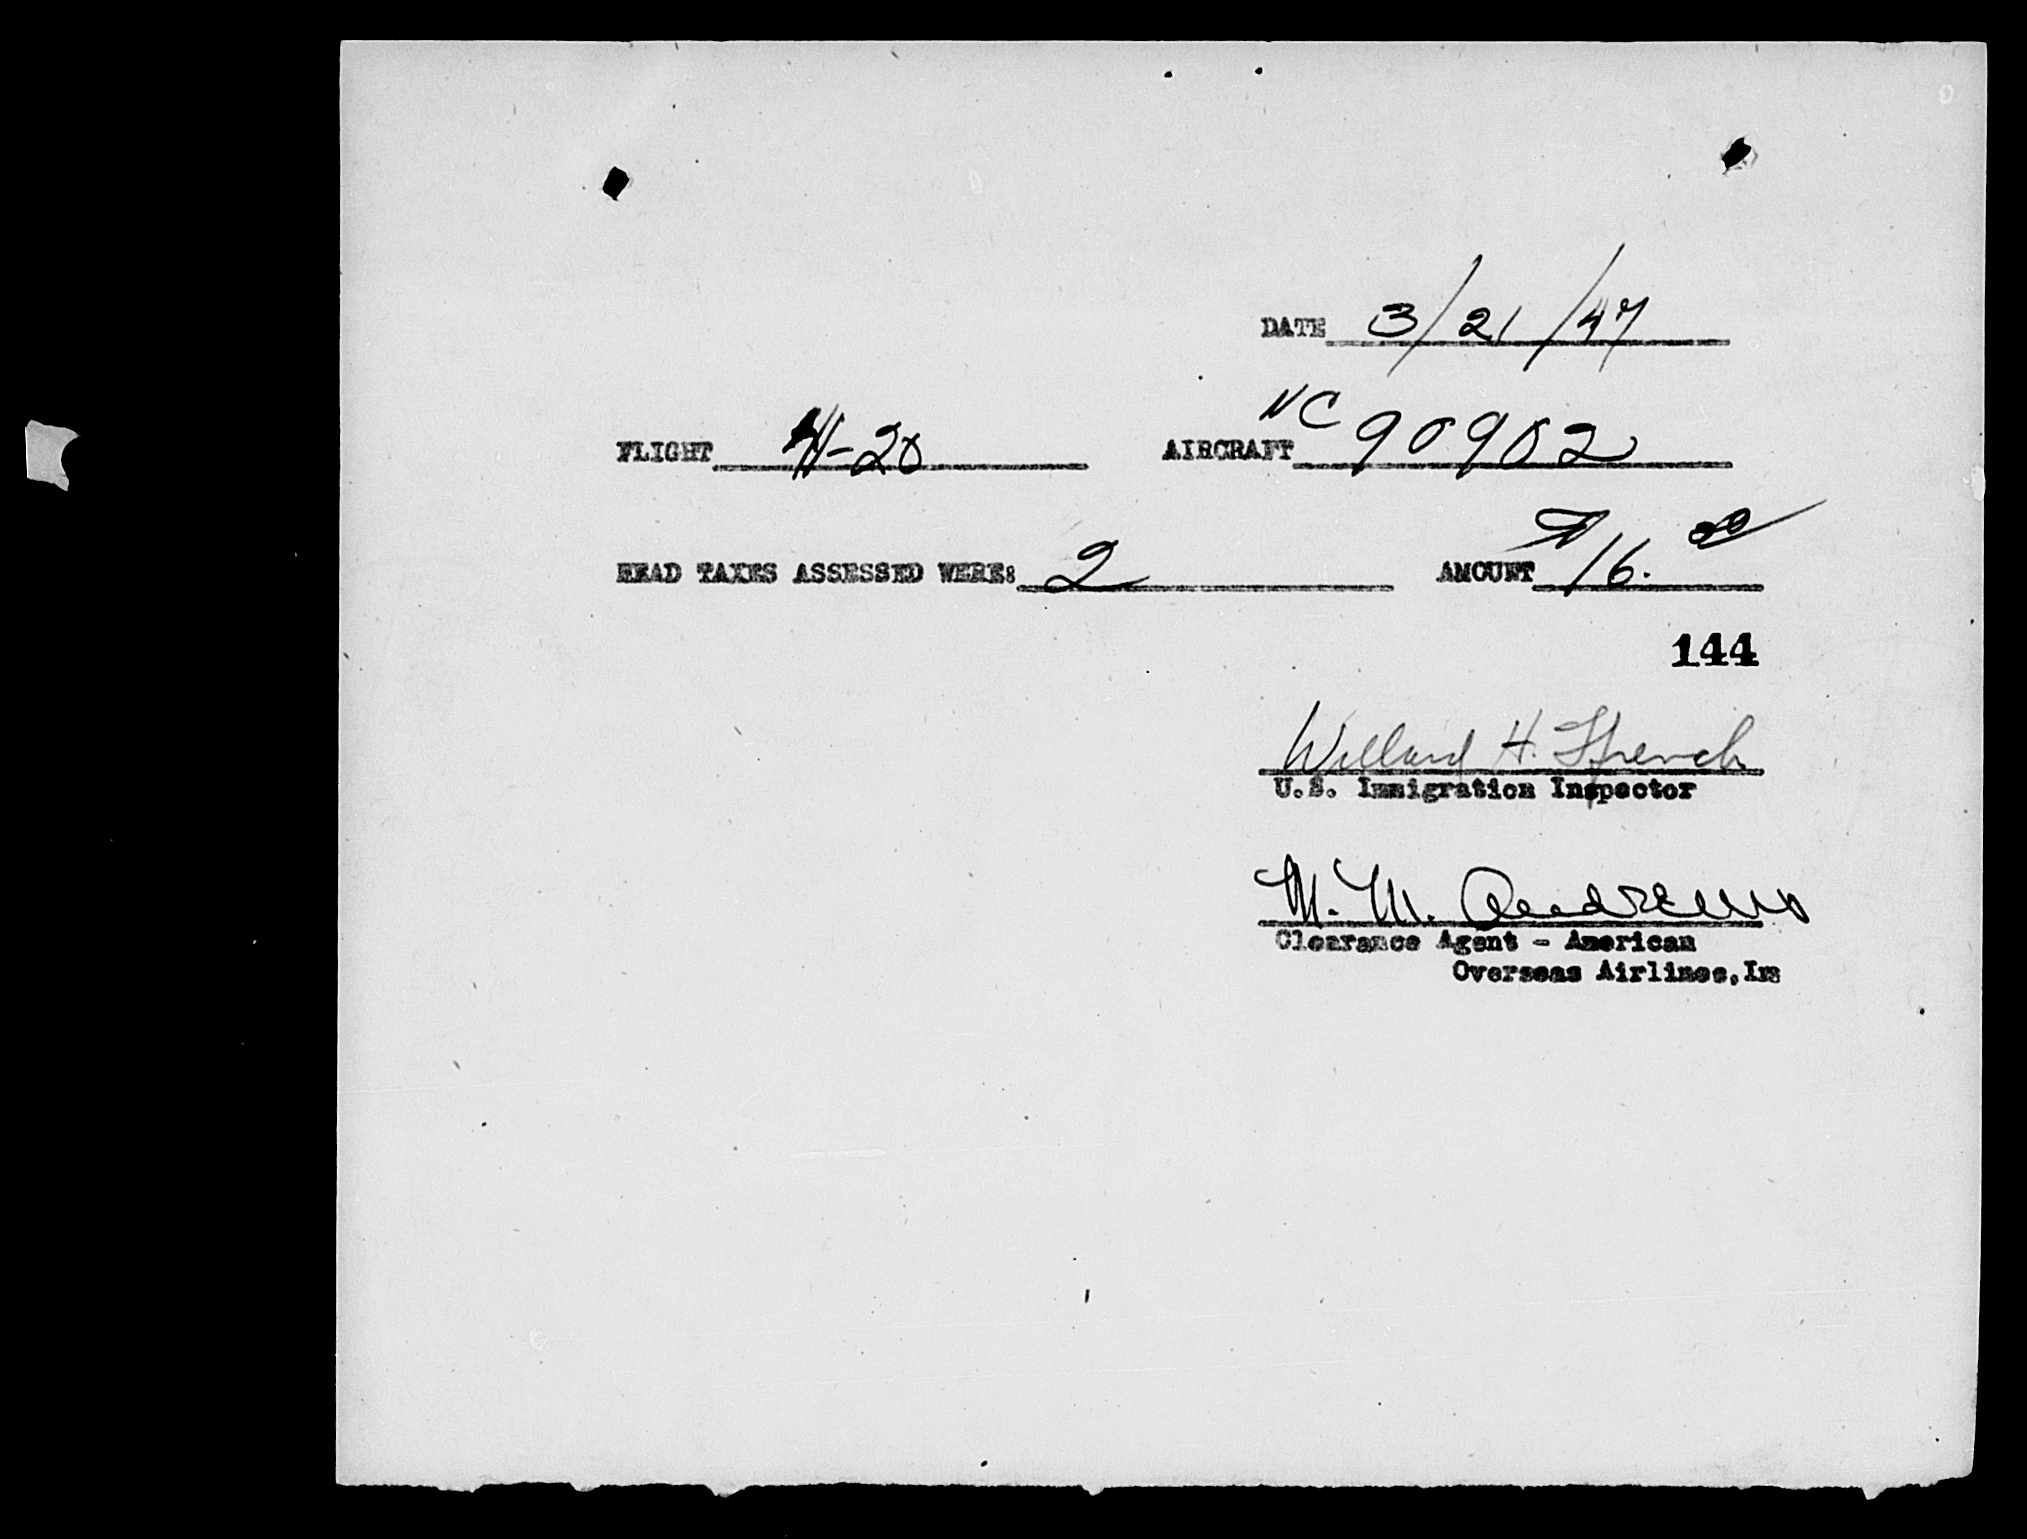 DATE 3/21/47
NC
FLIGHT -20 AIRCRAFT 90902
HEAD TAXES ASSESSED WERE: 2 AMOUNT $16.00
144
Willard H. French
U.S. Immigration Inspector
M. M.
Clearance Agent - American
Overseas Airlines, Inc